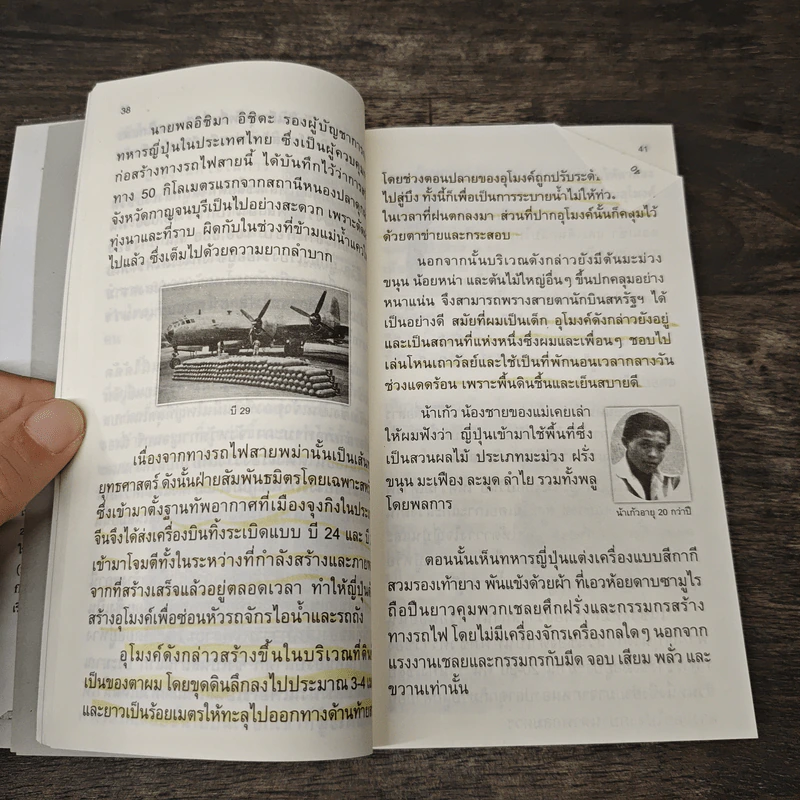 38
นายพลอิชิมา อิชิดะ รองผู้บัญชาการ
ทหารญี่ปุ่นในประเทศไทย ซึ่งเป็นผู้ควบคุม
ก่อสร้างทางรถไฟสายนี้ ได้บันทึกไว้ว่าการ
ทาง 50 กิโลเมตรแรกจากสถานีหนองปลาดุก
จังหวัดกาญจนบุรีเป็นไปอย่างสะดวก เพราะ
ทุ่งนาและที่ราบ ผิดกับในช่วงที่ข้ามแม่น้ำแคว
ไปแล้ว ซึ่งเต็มไปด้วยความยากลำบาก
บี 29
เนื่องจากทางรถไฟสายพม่านั้นเป็นเส้น
ยุทธศาสตร์ ดังนั้นฝ่ายสัมพันธมิตรโดยเฉพาะ
ซึ่งเข้ามาตั้งฐานทัพอากาศที่เมืองจุงกิงในประ
จีนจึงได้ส่งเครื่องบินทิ้งระเบิดแบบ บี 24 และ บี
เข้ามาโจมตีทั้งในระหว่างที่กำลังสร้างและภาย
จากที่สร้างเสร็จแล้วอยู่ตลอดเวลา ทำให้ญี่ปุ่น
สร้างอุโมงค์เพื่อซ่อนหัวรถจักรไอน้ำและรถถัง
อุโมงค์ดังกล่าวสร้างขึ้นในบริเวณที่ดิน
เป็นของตาผม โดยขุดดินลึกลงไปประมาณ 3-4
และยาวเป็นร้อยเมตรให้ทะลุไปออกทางด้านท้าย
41
โดยช่วงตอนปลายของอุโมงค์ถูกปรับระดั
ไปสู่บึง ทั้งนี้ก็เพื่อเป็นการระบายน้ำไม่ให้ท่ว
ในเวลาที่ฝนตกลงมา ส่วนที่ปากอุโมงค์นั้นก็คลุมไว้
ด้วยตาข่ายและกระสอบ
นอกจากนั้นบริเวณดังกล่าวยังมีต้นมะม่วง
ขนุน น้อยหน่า และต้นไม้ใหญ่อื่นๆ ขึ้นปกคลุมอย่าง
หนาแน่น จึงสามารถพรางสายตานักบินสหรัฐฯ ได้
เป็นอย่างดี สมัยที่ผมเป็นเด็ก อุโมงค์ดังกล่าวยังอยู่
และเป็นสถานที่แห่งหนึ่งซึ่งผมและเพื่อนๆ ชอบไป
เล่นโหนเถาวัลย์และใช้เป็นที่พักนอนเวลากลางวัน
ช่วงแดดร้อน เพราะพื้นดินชื้นและเย็นสบายดี
น้าเก้ว น้องชายของแม่เคยเล่า
ให้ผมฟังว่า ญี่ปุ่นเข้ามาใช้พื้นที่ซึ่ง
เป็นสวนผลไม้ ประเภทมะม่วง ฝรั่ง
ขนุน มะเฟือง ละมุด ลำไย รวมทั้งพลู
โดยพลการ
น้าเก้วอายุ 20 กว่าปี
ตอนนั้นเห็นทหารญี่ปุ่นแต่งเครื่องแบบสีกากี
สวมรองเท้ายาง พันแข้งด้วยผ้า ที่เอวห้อยดาบซามูไร
ถือปืนยาวคุมพวกเชลยศึกฝรั่งและกรรมกรสร้าง
ทางรถไฟ โดยไม่มีเครื่องจักรเครื่องกลใดๆ นอกจาก
แรงงานเชลยและกรรมกรกับมีด จอบ เสียม พลั่ว และ
ขวานเท่านั้น